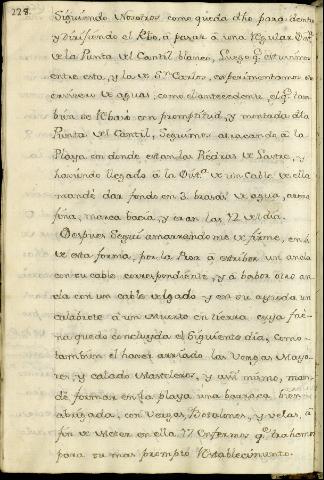 228.
Siguiendo Nosotros como queda dho para dentro
y Dirijiendo el Rbo, á pasar á una Regular Dist.ª
de la Punta del Cantil blanco, Luego q.e estuvimos
entre esta, y la de S.n Carlos, experimentamos
de aguas, como el antecedente, el q.e tam
bien se Rbasó con promptitud, y montada dha
Punta del Cantil, Seguimos atracando á la
Playa en donde estan las Piedras de Lastre, y
haviendo llegado á la Dist.ª de un Cable de ella
mandé dar fondo en 3. brasas de agua, arena
fina, marea bacia, y eran las 12 del dia.
Despues Seguí amarrandome de firme, en
de esta forma, por la Proa á estribor un ancla
con su cable correspondiente, y á babor otro an
cla con un cable delgado y en su ayuda un
calabrote á un Muerto en tierra cuya fae
na quedo concluyda el Siguiente dia, como
tambien el haver arriado las Vergas Mayo
res, y calado Masteleros, y assi mismo, man
dé formar en la playa una barraca bien
abrigada, con Vergas, Botalones, y velas, á
fin de Meter en ella 17 Enfermos q.e trahemos
para su mas prompto Restablecimiento.